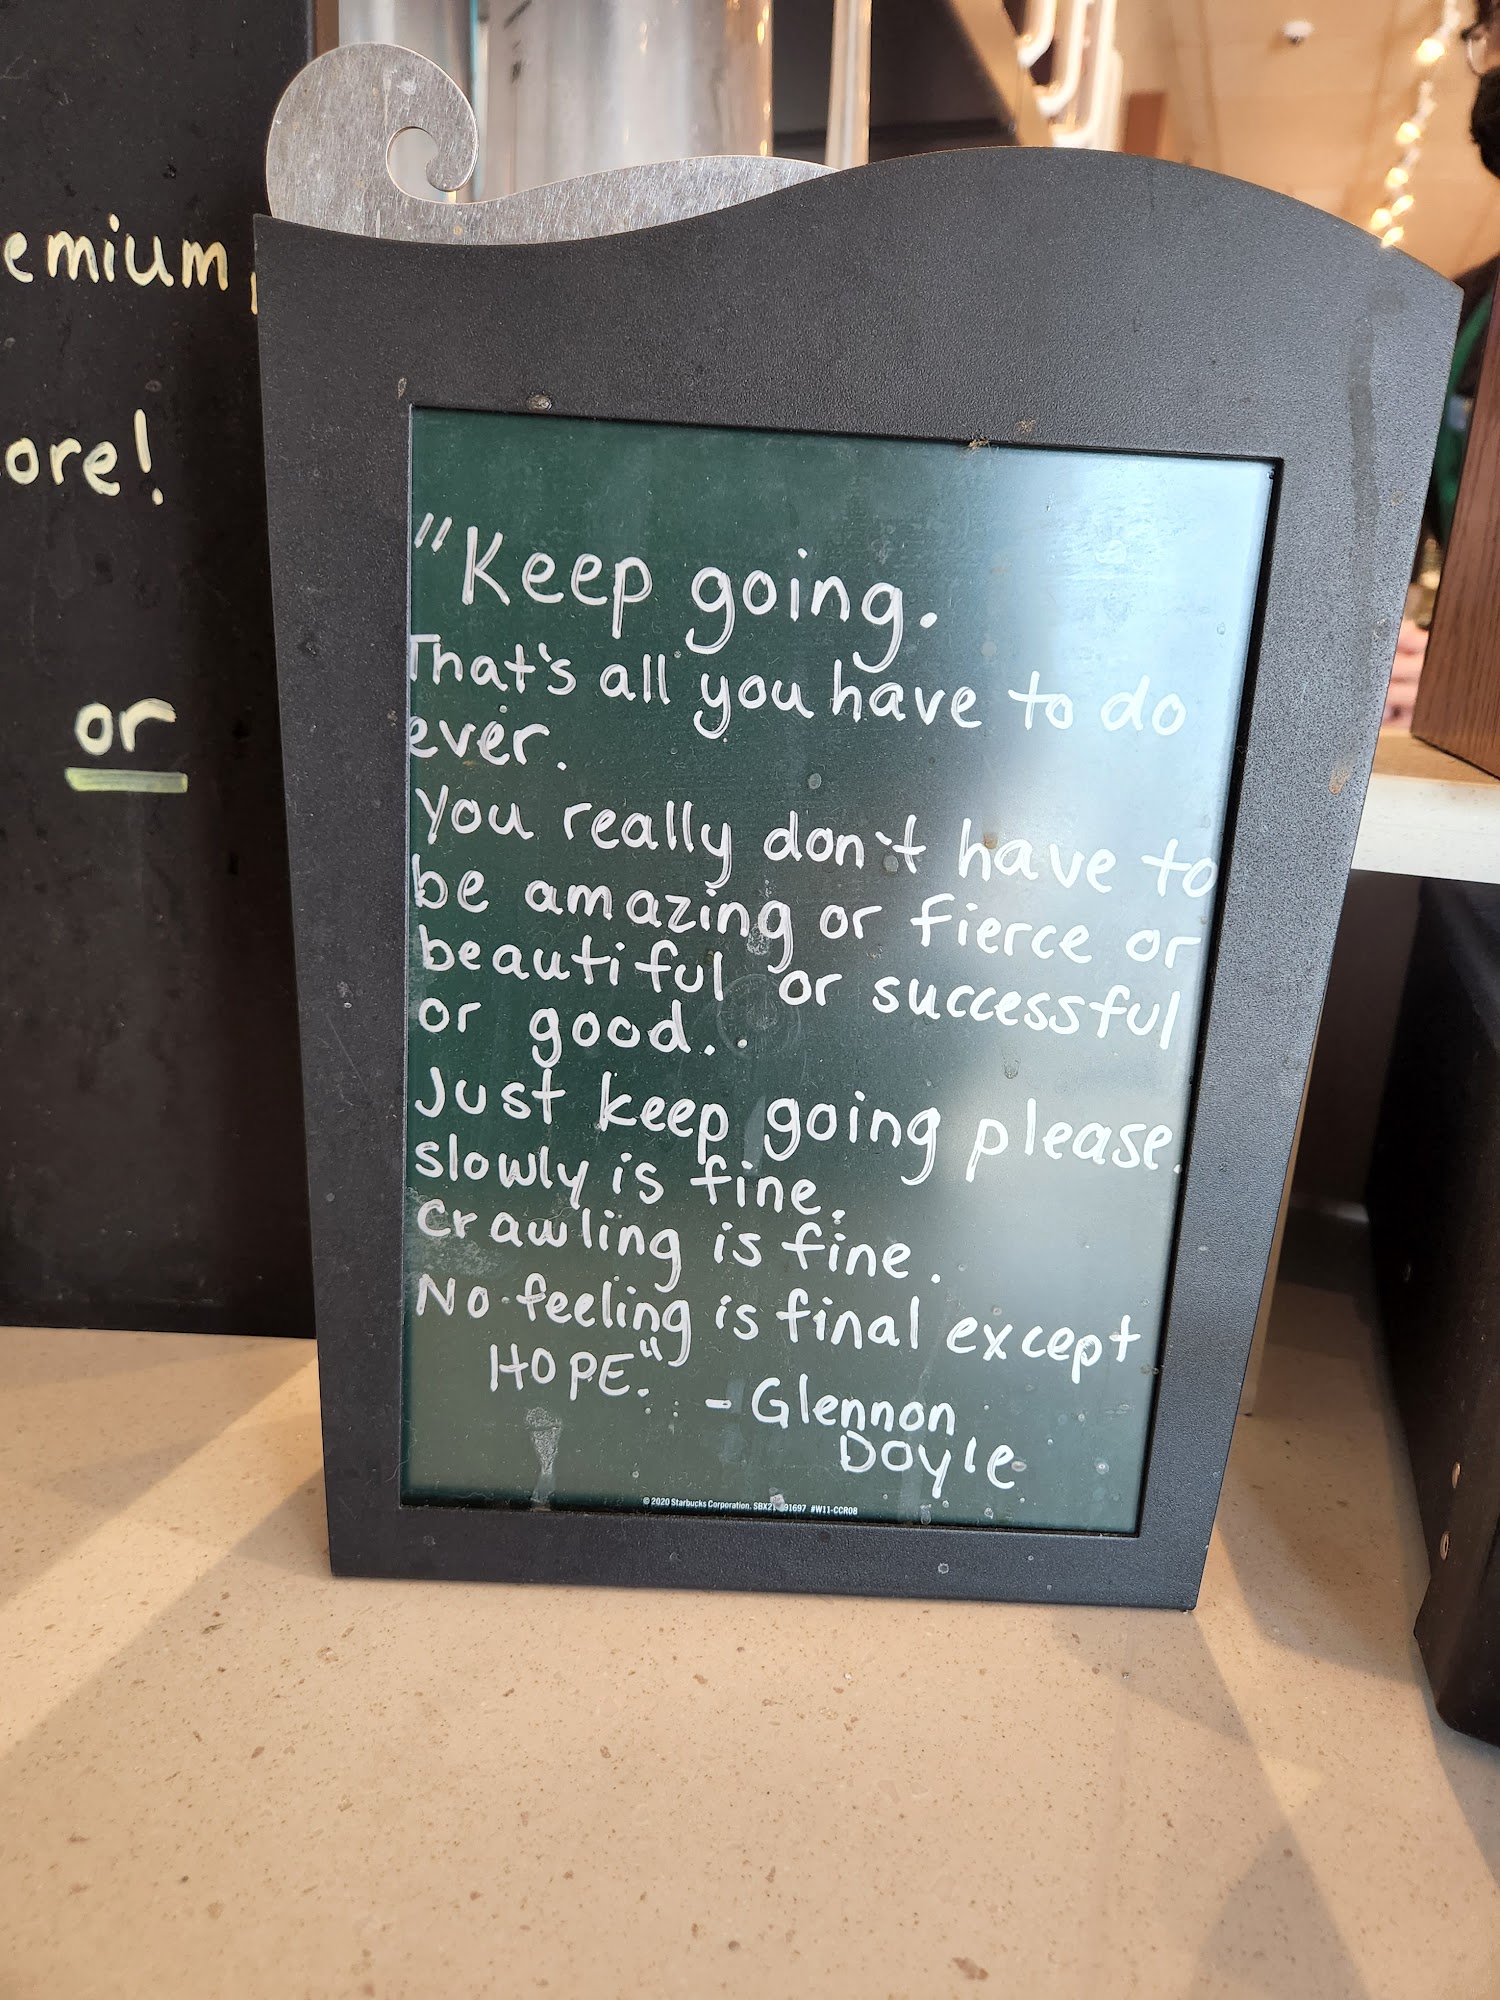 emium
ore!
or
"Keep going.
That's all you have to do
ever.
You really don't have to
be amazing or fierce or
beautiful or successful
or good..
Just keep going please.
slowly is fine.
Crawling is fine.
No feeling is final except
HOPE."
- Glennon
Doyle
© 2020 Starbucks Corporation. #W11-CCR08